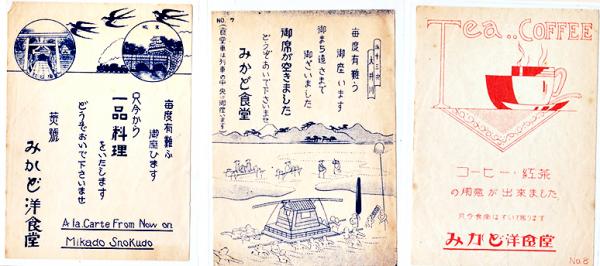 毎度有難ふ
御座ひます
只今から
一品料理
をいたします
どうぞおいで下さいませ
みかど洋食堂
A la Carte From Now on
Mikado Shokudo
NO. 7
大井川
毎度有難う
御座います
御まち遠さまで
御ざいました
御席が空きました
どうぞおいで下さいませ
みかど食堂
(食堂車は列車の中央に御座います)
Tea..COFFEE
コーヒー・紅茶
の用意が出来ました
只今食堂はすいて居ります
みかど洋食堂
No.8